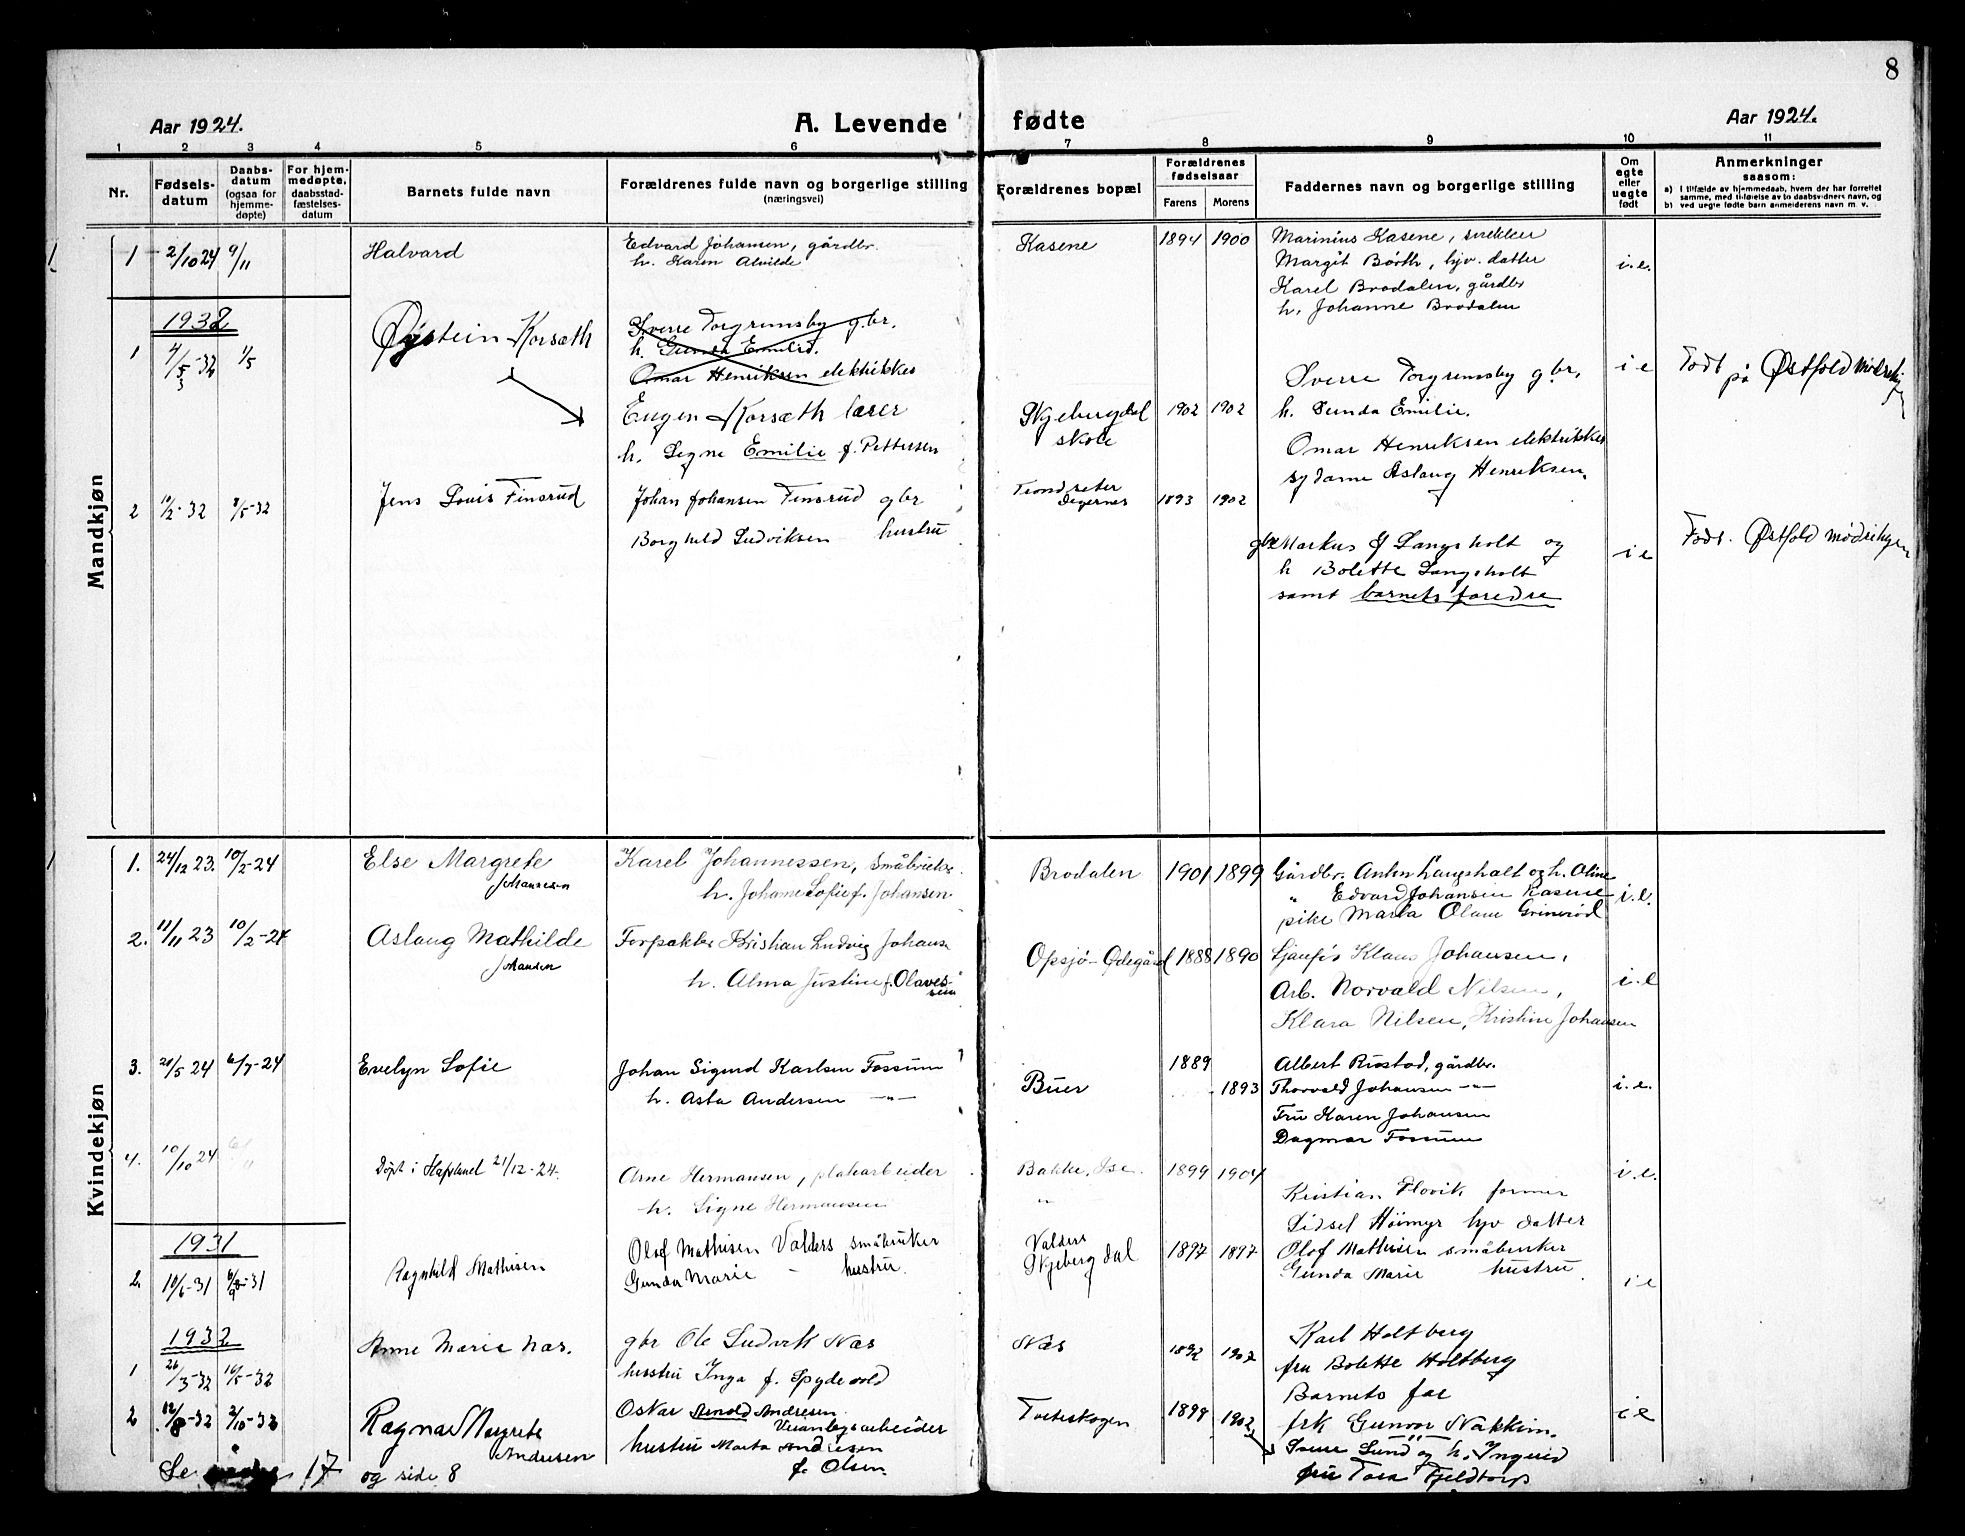 8
Aar 1924.
A. Levende fødte
Aar 1924.
1 2 3 4 5 6 7 8 9 10 11
Nr.
Fødsels-
datum
Daabs-
datum
(ogsaa for
hjemme-
døpte)
For hjem-
medøpte,
daabsstad-
fæstelses-
datum
Barnets fulde navn
Forældrenes fulde navn og borgerlige stilling
(næringsvei)
Forældrenes bopæl
Forældrenes
fødselsaar
Farens Morens
Faddernes navn og borgerlige stilling
Om
egte
eller
uegte
født
Anmerkninger
saasom:
a) I tilfælde av hjemmedaab, hvem der har forrettet
samme, med tilføielse av to daabsvidners navn, og
b) ved uegte fødte barn anmelderens navn m. v.
Mandkjøn
1 2/10 24 9/11 Halvard
Edvard Johansen, gårdbr.
h. Karen Alvilde
Kasene 1894 1900
Marinius Kasene, snekker
Margit Børth, hjv. datter
Karel Brodalen, gårdbr
h. Johanne Brodalen
i.e.
1932
1 4/3-32 1/5 Øystein Korsæth
Sverre Torgrimsby gbr.
h. Gunda Emilie.
Omar Henriksen elektrikker
Eugen Korsæth lærer
h. Signe Emilie f. Pettersen
Skjebergdal
skole
1902 1902
Sverre Torgrimsby gbr,
h. Gunda Emilie.
Omar Henriksen elektrikker
sydame Aslaug Henriksen.
i e
Født på Østfold
2 10/2-32 8/5-32 Jens Louis Finsrud
Johan Johansen Finsrud gbr
Borghild Ludviksen hustru
Degernes
1893 1902
gbr Markus Langsholt og
h Bolette Langsholt
samt barnets foredre
i e
Født. Østfold
Kvindekjøn
1. 24/12 23. 10/2-24 Else Margrete
Johannesen
Karel Johannessen, Småbruker
h. Johane Sofie f. Johansen
Brodalen 1901 1899
Gårdbr. Anton Langsholt og h. Oline
" Edvard Johansen Kasene
pike Marta Olane Grinerød
i.e.
2. 11/11 23 10/2-24 Aslaug Mathilde
Johansen
Kristian Ludvig Johans
h. Alma Justine f. Olaves-
sen
Opsjø-Ødegård 1888 1890
Klaus Johansen,
Arb. Norvald Nilsen,
Klara Nilsen, Kristine Johansen
i.e
3. 21/5 24 6/7-24 Evelyn Sofie
Johan Sigurd Karlsen Fossum
h. Asta Andersen -"-
Buer
1889
1893
Albert Rustad, gårdbr.
Thorvald Johansen -"-
Fru Karen Johansen
Dagmar Fossum
i.e.
4. 10/10 24 Døpt i Hafslund 21/12-24.
Arne Hermansen, platearbeider
h. Signe Hermansen
Bakke, Ise.
"
1899 1904
Kristian Hovik former
Sidsel Høimyr hjv datter
i.e.
1931
2. 10/6-31 Ragnhild Mathisen
Olof Mathisen Valders småbruker
Gunda Marie - hustru.
Valders
Skjebergdal
1897 1897
Olof Mathisen småbruker
Gunda Marie hustru
i e
1932
1 26/3-32 16/5-32 Anne Marie Næs.
gbr Ole Ludvik Næs
hustru Inga f. Spydevold
Næs
1892 1907
Karl Holtberg
fru Bolette Holtberg
Barnets far
frk Gunvor Nakkim.
i e
2 12/8-32 2/10-32 Ragna Margrete
Andresen
Oskar Arnold Andresen
Veianlegsarbeider
hustru Marta Andresen
f. Olsen.
Tveteskogen
1899 1902
Svene Lund og h. Ingrid
fru Tora Fjeldtorp
Se 17 og side 8